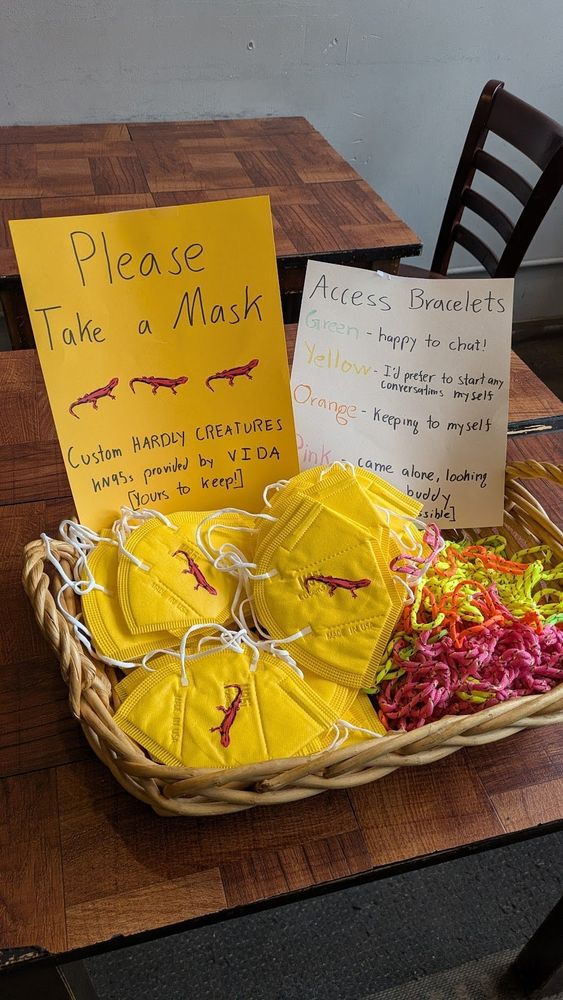 Please
Take a Mask
Custom HARDLY CREATURES
KN95s provided by VIDA
[yours to keep!]
Access Bracelets
Green - happy to chat!
Yellow - I'd prefer to start any
conversations myself
Orange - keeping to myself
Pink - came alone, looking
buddy
MADE IN USA
MADE IN USA